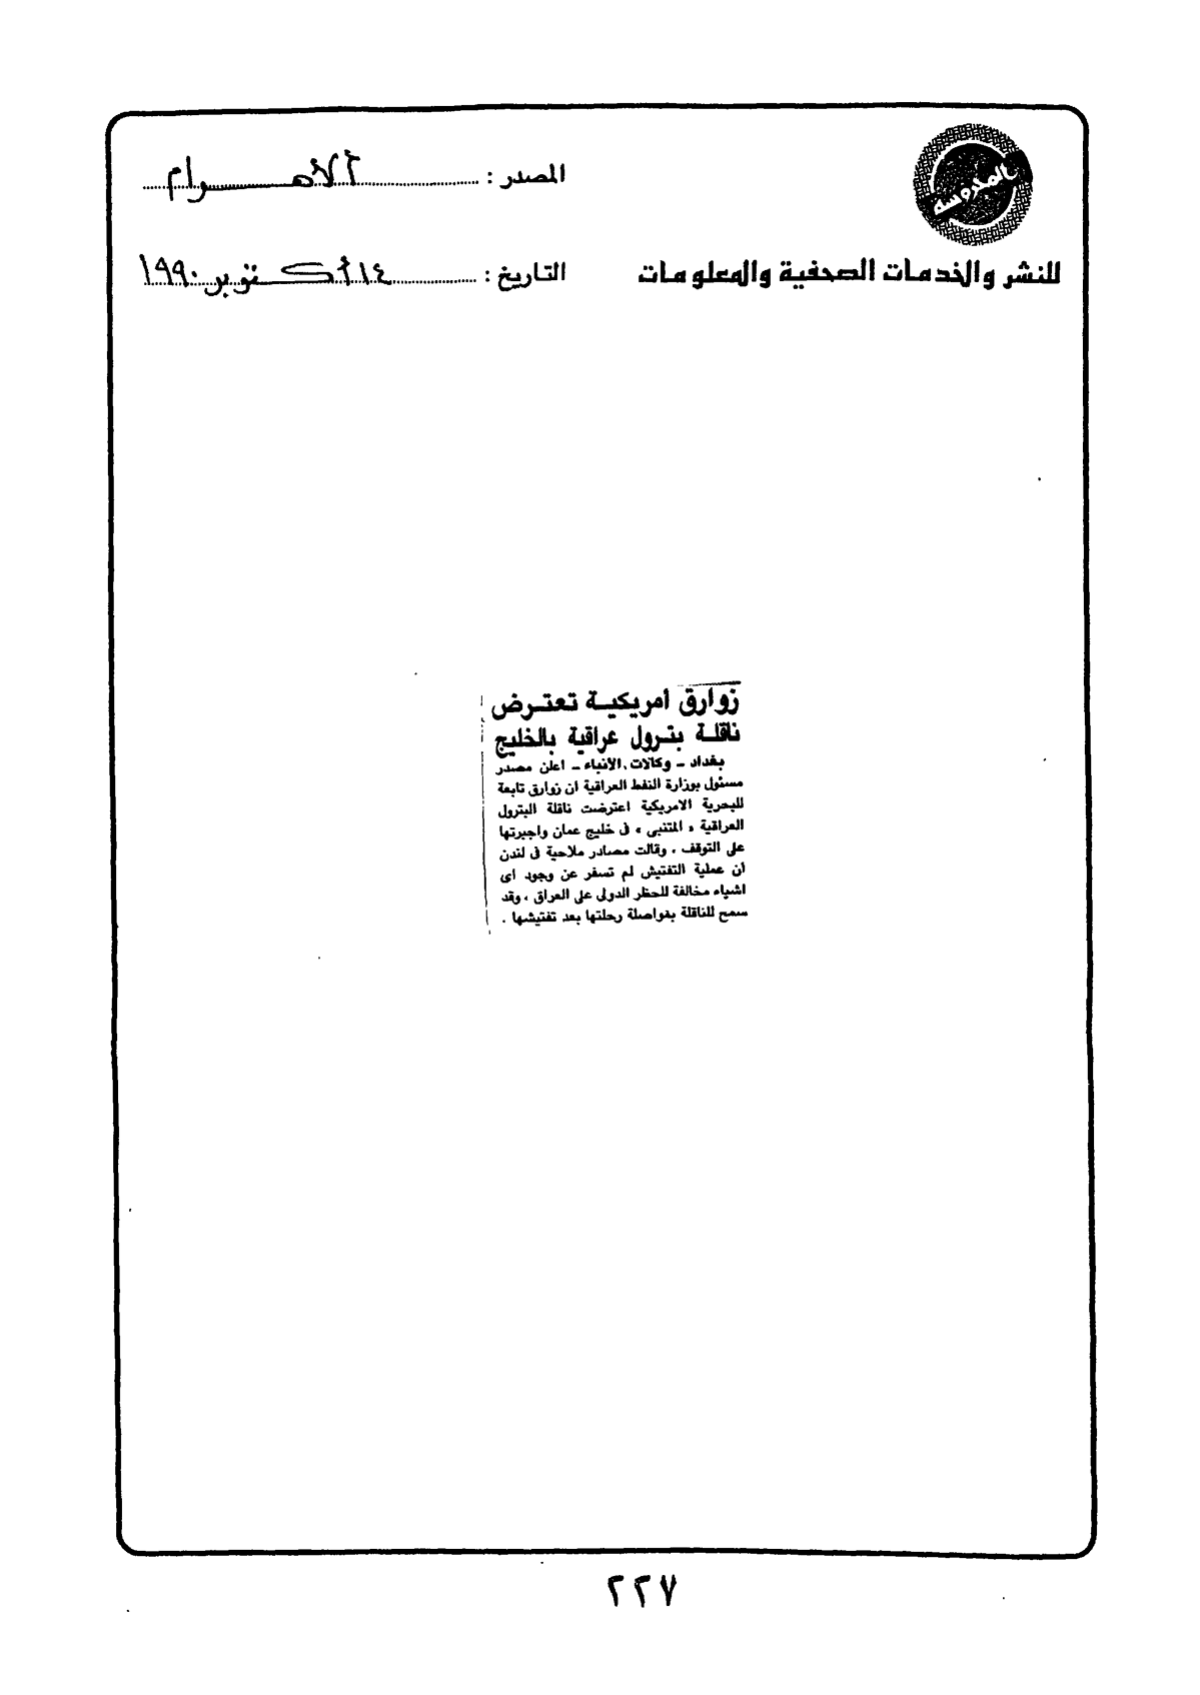 المصدر : الأهـــرام
للنشر والخدمات الصحفية والمعلومات
التاريخ : ١٤ أكتوبر ١٩٩٠
زوارق امريكيـة تعتـرض
ناقلـة بتـرول عراقية بالخليج
بغداد ـ وكالات الأنباء ـ اعلن مصدر
مسئول بوزارة النفط العراقية ان زوارق تابعة
للبحرية الامريكية اعترضت ناقلة البترول
العراقية « المتنبى » فى خليج عمان واجبرتها
على التوقف ، وقالت مصادر ملاحية فى لندن
أن عملية التفتيش لم تسفر عن وجود اى
اشياء مخالفة للحظر الدولى على العراق ، وقد
سمح للناقلة بمواصلة رحلتها بعد تفتيشها .
٢٢٧